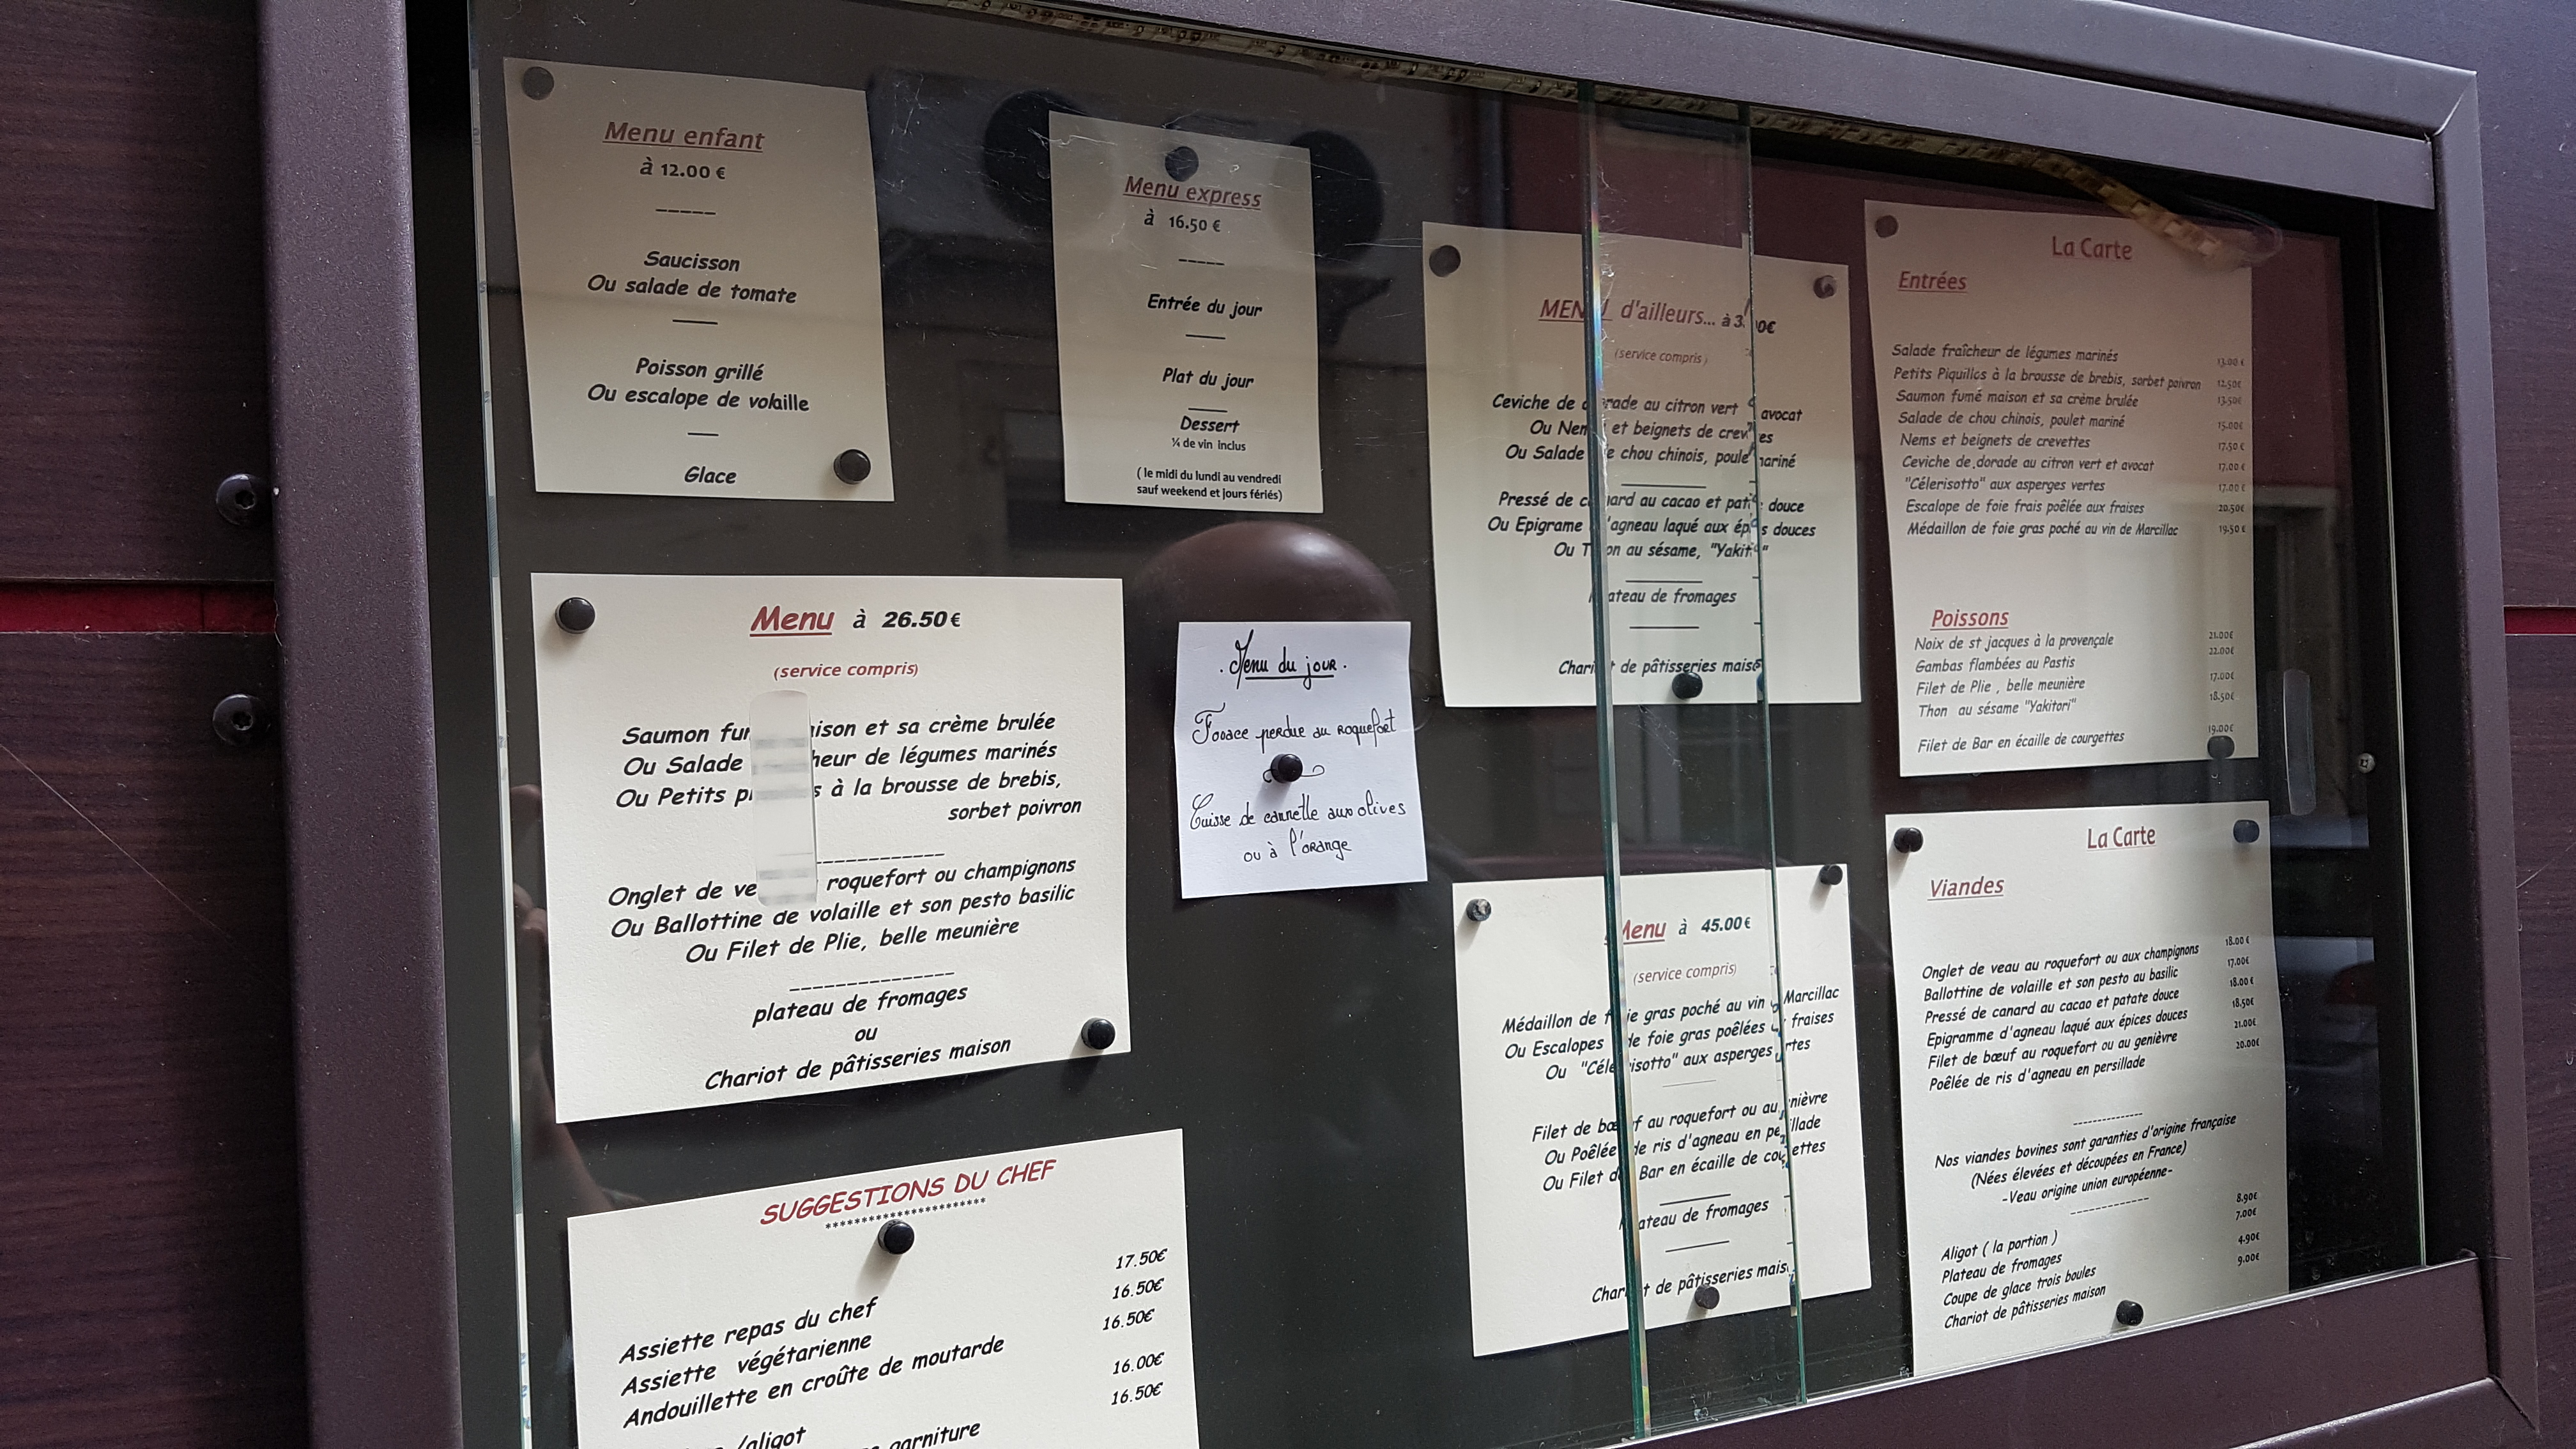 Menu enfant
à 12.00 €
Saucisson
Ou salade de tomate
Poisson grillé
Ou escalope de volaille
Glace
Menu express
à 16.50 €
Entrée du jour
Plat du jour
Dessert
¼ de vin inclus
( le midi du lundi au vendredi
sauf weekend et jours fériés)
MENU d'ailleurs... à
(service compris)
Ceviche de dorade au citron vert avocat
Ou Nems et beignets de crevettes
Ou Salade de chou chinois, poulet mariné
Pressé de canard au cacao et patate douce
Ou Epigrame d'agneau laqué aux épices douces
Ou Thon au sésame, "Yakitori"
Plateau de fromages
Chariot de pâtisseries maison
La Carte
Entrées
Salade fraîcheur de légumes marinés 13.00 €
Petits Piquillos à la brousse de brebis, sorbet poivron 12.50€
Saumon fumé maison et sa crème brulée 13.50€
Salade de chou chinois, poulet mariné 15.00€
Nems et beignets de crevettes 17.50 €
Ceviche de dorade au citron vert et avocat 17.00 €
"Célerisotto" aux asperges vertes 17.00 €
Escalope de foie frais poêlée aux fraises 20.50€
Médaillon de foie gras poché au vin de Marcillac 19.50 €
Poissons
Noix de st jacques à la provençale 21.00€
Gambas flambées au Pastis 22.00€
Filet de Plie , belle meunière 17.00€
Thon au sésame "Yakitori" 18.50€
Filet de Bar en écaille de courgettes 19.00€
Menu à 26.50€
(service compris)
Saumon fumé maison et sa crème brulée
Ou Salade fraîcheur de légumes marinés
Ou Petits à la brousse de brebis,
sorbet poivron
Onglet de veau roquefort ou champignons
Ou Ballottine de volaille et son pesto basilic
Ou Filet de Plie, belle meunière
plateau de fromages
ou
Chariot de pâtisseries maison
. Menu du jour .
Fouace perdue au roquefort
Cuisse de cannette aux olives
ou à l'orange
Menu à 45.00€
(service compris)
Médaillon de foie gras poché au vin Marcillac
Ou Escalopes de foie gras poêlées fraises
Ou "Célerisotto" aux asperges vertes
Filet de bœuf au roquefort ou au genièvre
Ou Poêlée de ris d'agneau en persillade
Ou Filet de Bar en écaille de courgettes
Plateau de fromages
Chariot de pâtisseries maison
La Carte
Viandes
Onglet de veau au roquefort ou aux champignons 18.00 €
Ballottine de volaille et son pesto au basilic 17.00€
Pressé de canard au cacao et patate douce 18.00 €
Epigramme d'agneau laqué aux épices douces 18.50€
Filet de bœuf au roquefort ou au genièvre 21.00€
Poêlée de ris d'agneau en persillade 20.00€
Nos viandes bovines sont garanties d'origine française
(Nées élevées et découpées en France)
-Veau origine union européenne-
Aligot ( la portion ) 8.90€
Plateau de fromages 7.00€
Coupe de glace trois boules 4.90€
Chariot de pâtisseries maison 9.00€
SUGGESTIONS DU CHEF
***********************
Assiette repas du chef 17.50€
Assiette végétarienne 16.50€
Andouillette en croûte de moutarde 16.50€
/aligot 16.00€
garniture 16.50€